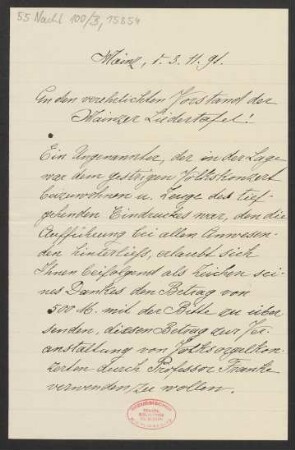 55 Nachl 100/B, 15254
Mainz, d. 3. 11. 91.
An den verehrlichten Vorstand der
Mainzer Liedertafel!
Ein Ungenannter, der in der Lage
war dem gestrigen Volkskonzert
beizuwohnen u. Zeuge des tief-
gehenden Eindruckes war, den die
Aufführung bei allen Anwesen-
den hinterließ, erlaubt sich
Ihnen beifolgend als Zeichen sei-
nes Dankes den Betrag von
500 M. mit der Bitte zu über-
senden, diesen Betrag zur Ver-
anstaltung von Volksorgelkon-
zerten durch Professor Franke
verwenden zu wollen.